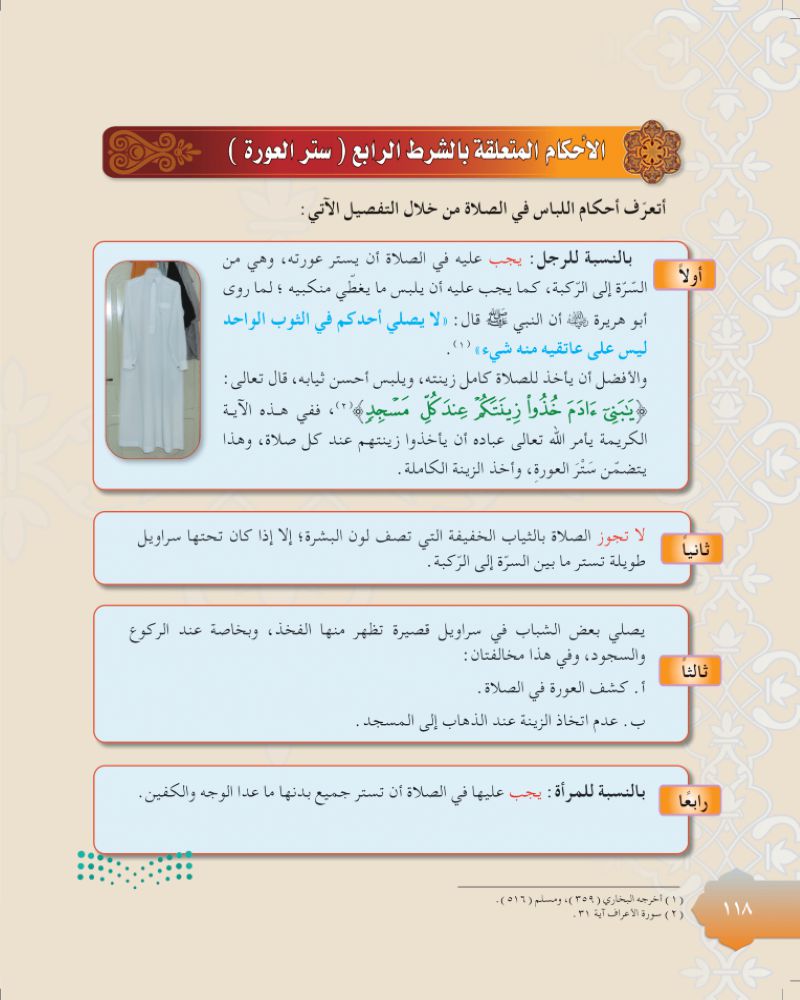 الأحكام المتعلقة بالشرط الرابع ( ستر العورة )
أتعرّف أحكام اللباس في الصلاة من خلال التفصيل الآتي :
أولاً
بالنسبة للرجل : يجب عليه في الصلاة أن يستر عورته، وهي من
السّرّة إلى الرّكبة، كما يجب عليه أن يلبس ما يغطّي منكبيه ؛ لما روى
أبو هريرة رضي الله عنه أن النبي ﷺ قال : «لا يصلي أحدكم في الثوب الواحد
ليس على عاتقيه منه شيء» (١) .
والأفضل أن يأخذ للصلاة كامل زينته، ويلبس أحسن ثيابه، قال تعالى :
﴿يَٰبَنِيٓ ءَادَمَ خُذُواْ زِينَتَكُمۡ عِندَ كُلِّ مَسۡجِدٖ﴾(٢)، ففي هـذه الآيـة
الكريمة يأمر الله تعالى عباده أن يأخذوا زينتهم عند كل صلاة، وهذا
يتضمّن سَتْرَ العورةِ، وأخذ الزينة الكاملة .
ثانياً
لا تجوز الصلاة بالثياب الخفيفة التي تصف لون البشرة؛ إلا إذا كان تحتها سراويل
طويلة تستر ما بين السرّة إلى الرّكبة .
ثالثاً
يصلي بعض الشباب في سراويل قصيرة تظهر منها الفخذ، وبخاصة عند الركوع
والسجود، وفي هذا مخالفتان :
أ . كشف العورة في الصلاة .
ب . عدم اتخاذ الزينة عند الذهاب إلى المسجد .
رابعًا
بالنسبة للمرأة : يجب عليها في الصلاة أن تستر جميع بدنها ما عدا الوجه والكفين .
( ١ ) أخرجه البخاري ( ٣٥٩ )، ومسلم ( ٥١٦ ) .
( ٢ ) سورة الأعراف آية ٣١ .
١١٨